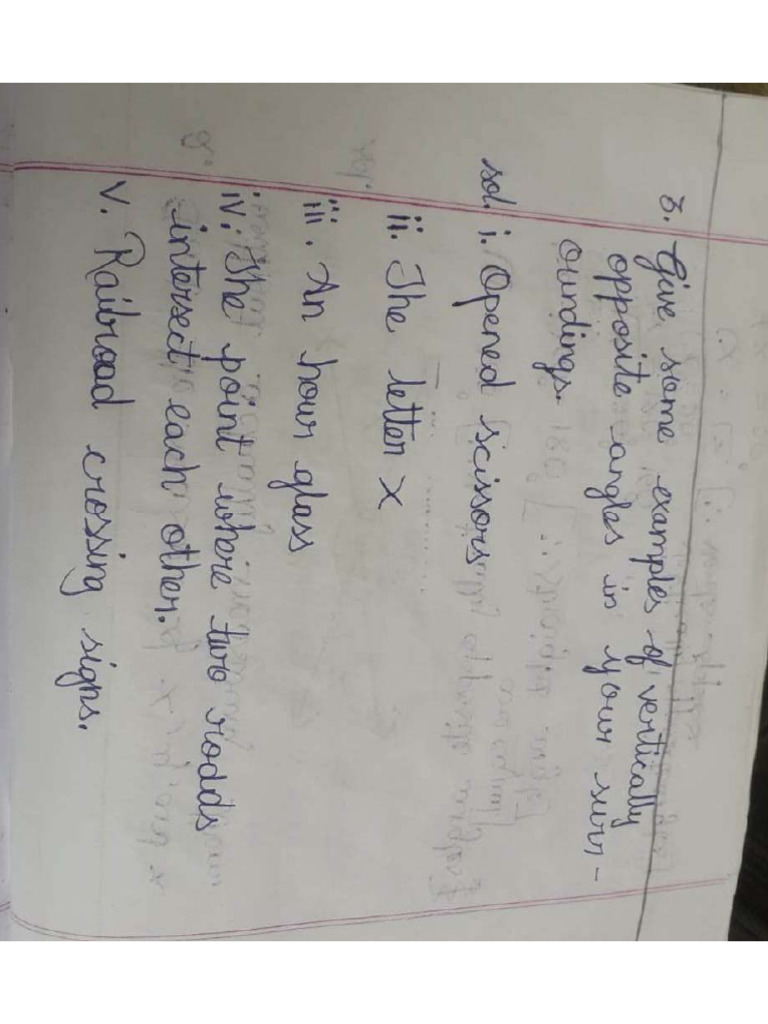 3. Give some examples of vertically
opposite angles in your surr-
oundings.
sol. i. Opened scissors
ii. The letter x
iii. An hour glass
iv. The point where two roads
intersect each other.
v. Railroad crossing signs.